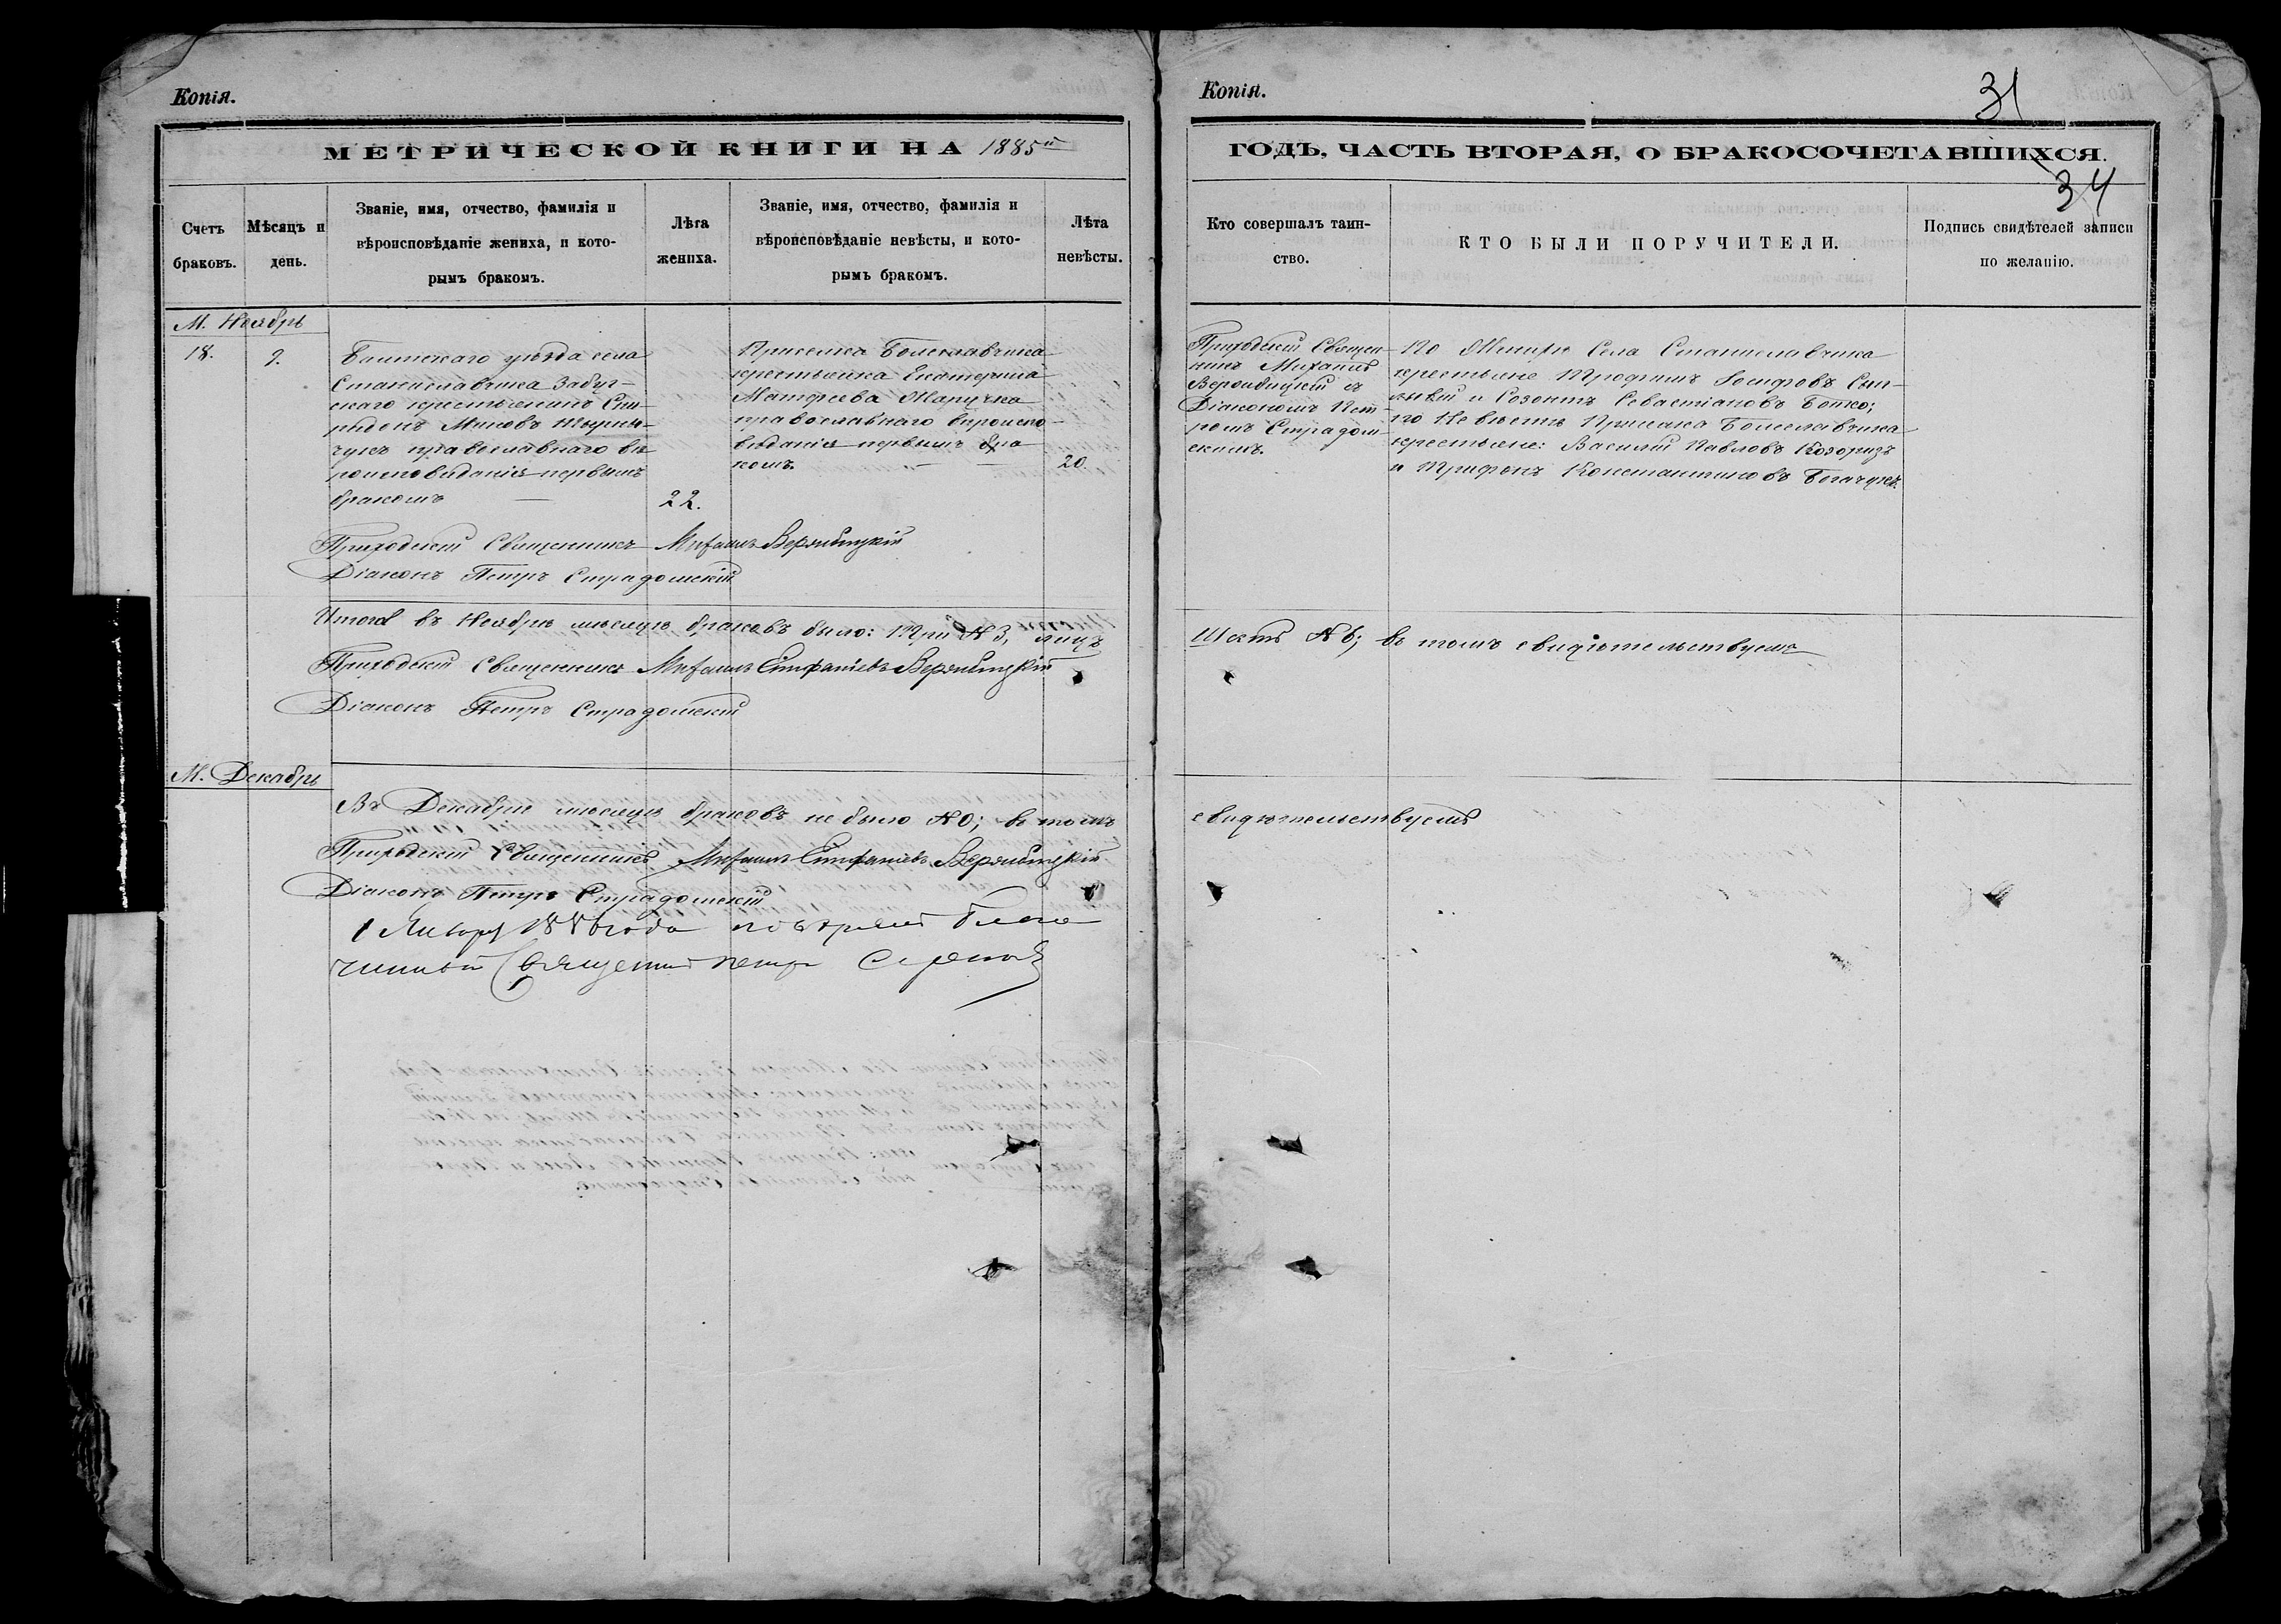 Копія.
МЕТРИЧЕСКОЙ КНИГИ НА 1885й
Счетъ браковъ.
Мѣсяцъ и день.
Званіе, имя, отчество, фамилія и вѣроисповѣданіе жениха, и которымъ бракомъ.
Лѣта жениха.
Званіе, имя, отчество, фамилія и вѣроисповѣданіе невѣсты, и которымъ бракомъ.
Лѣта невѣсты.
М. Ноябрь
18.
9.
уѣзда села
Станиславчика Забуг-
скаго крестьянинъ Спи-
ридонъ
православнаго вѣ
роисповѣданія первымъ
бракомъ
22.
Приселка Болеславчика
крестьянка Екатерина
Матфеева
православнаго вѣроиспо-
вѣданія первымъ бра
комъ.
20
Приходскій Священникъ Михаилъ Вержбицкій
Діаконъ Петръ Страдомскій
Итого въ Ноябрѣ мѣсяцѣ браковъ было: три № 3, лицъ
Приходскій Священникъ Михаилъ Епифаніевъ Вержбицкій
Діаконъ Петръ Страдомскій
М. Декабрь
Въ Декабрѣ мѣсяцѣ браковъ не было № 0; въ томъ
Приходскій Священникъ Михаилъ Епифаніевъ Вержбицкій
Діаконъ Петръ Страдомскій
1 Января 1886 года Благо
чинный Священникъ Петръ
Копія.
31
ГОДЪ, ЧАСТЬ ВТОРАЯ, О БРАКОСОЧЕТАВШИХСЯ.
34
Кто совершалъ таинство.
КТО БЫЛИ ПОРУЧИТЕЛИ.
Подпись свидѣтелей записи по желанію.
Приходскій Священ-
никъ Михаилъ
Вержбицкій съ
Діакономъ Пет-
ромъ Страдом-
скимъ.
По Женихѣ Села Станиславчика
крестьяне Трофимъ Іосифовъ
и Созонтъ Севастіановъ Бойко;
по Невѣстѣ Приселка Болеславчика
крестьяне: Василій Павловъ Козоризъ
и Трифонъ Константиновъ Богачукъ.
Шесть № 6; въ томъ свидѣтельствуемъ
свидѣтельствуемъ